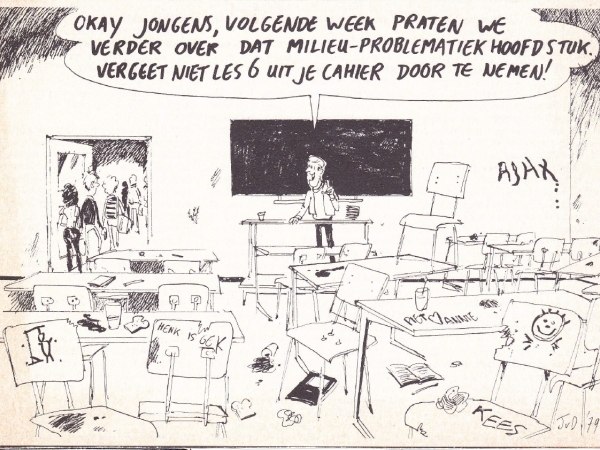 OKAY JONGENS, VOLGENDE WEEK PRATEN WE
VERDER OVER DAT MILIEU-PROBLEMATIEK HOOFDSTUK.
VERGEET NIET LES 6 UIT JE CAHIER DOOR TE NEMEN!
AJAX
HENK IS GEK
KEES
JvD. '79